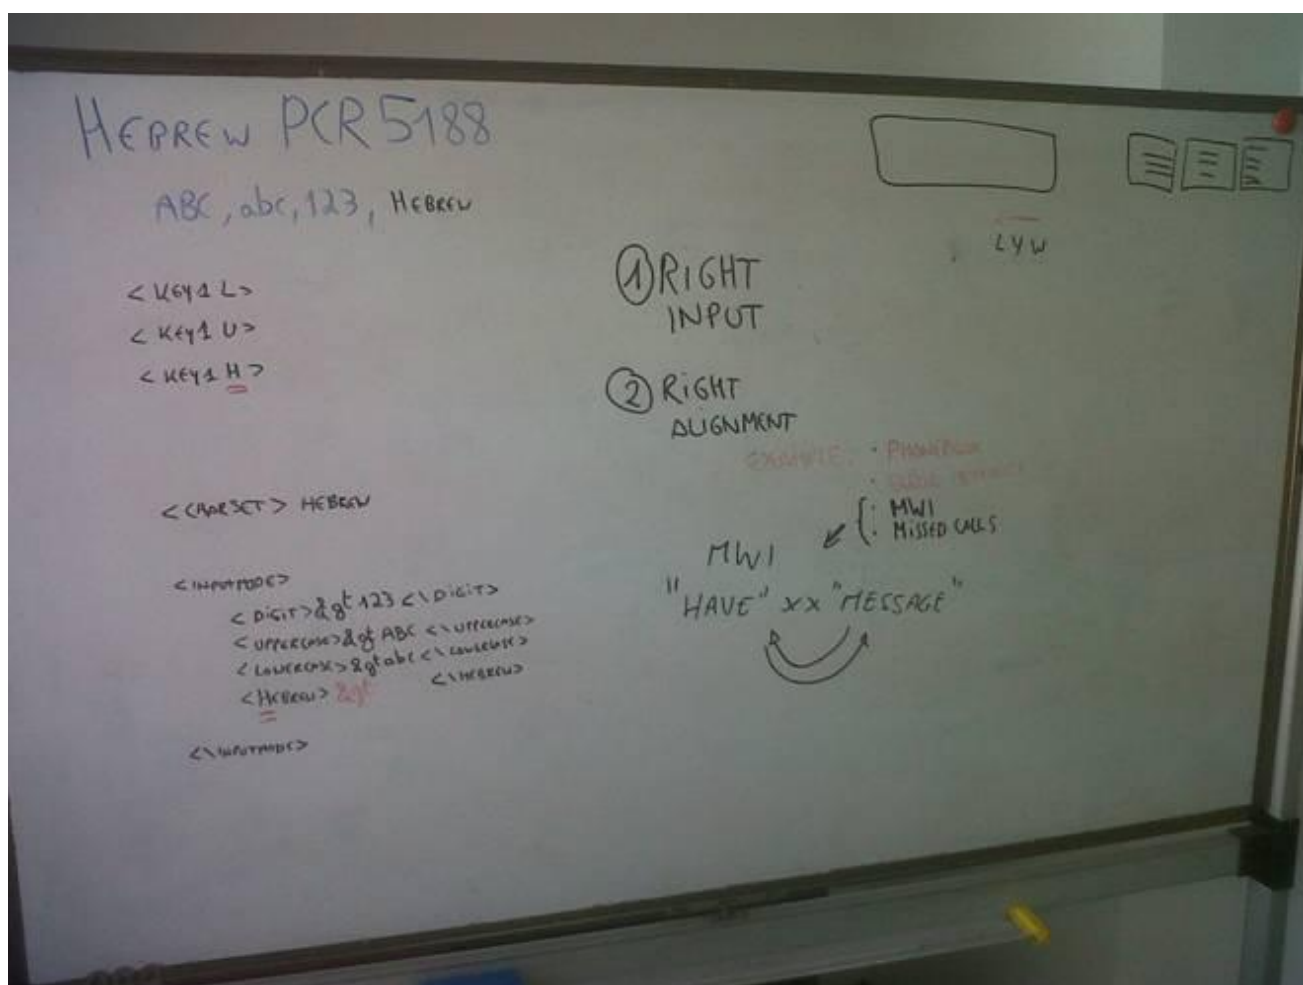 HEBREW PCR 5188
ABC, abc, 123, HEBREW
<KEY1 L>
<KEY1 U>
<KEY1 H>
<CHARSET> HEBREW
<INPUTMODE>
<DIGIT>&gt 123 <\DIGIT>
<UPPERCASE>&gt ABC <\UPPERCASE>
<LOWERCASE>&gt abc <\LOWERCASE>
<HEBREW> &gt <\HEBREW>
<\INPUTMODE>
LYW
1 RIGHT
INPUT
2 RIGHT
ALIGNMENT
EXAMPLE: · PHONEBOOK
· MWI
· MISSED CALLS
MWI
"HAVE" xx "MESSAGE"